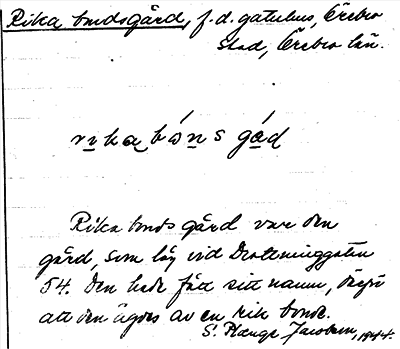 Rika bondsgård, f.d. gatuhus, Örebro
stad, Örebro län.
rika bóns gád
Rika bonds gård var den
gård, som låg vid Drottninggatan
54. Den hade fått sitt namn, därför
att den ägdes av en rik bonde.
S. Jacobson, 1944.